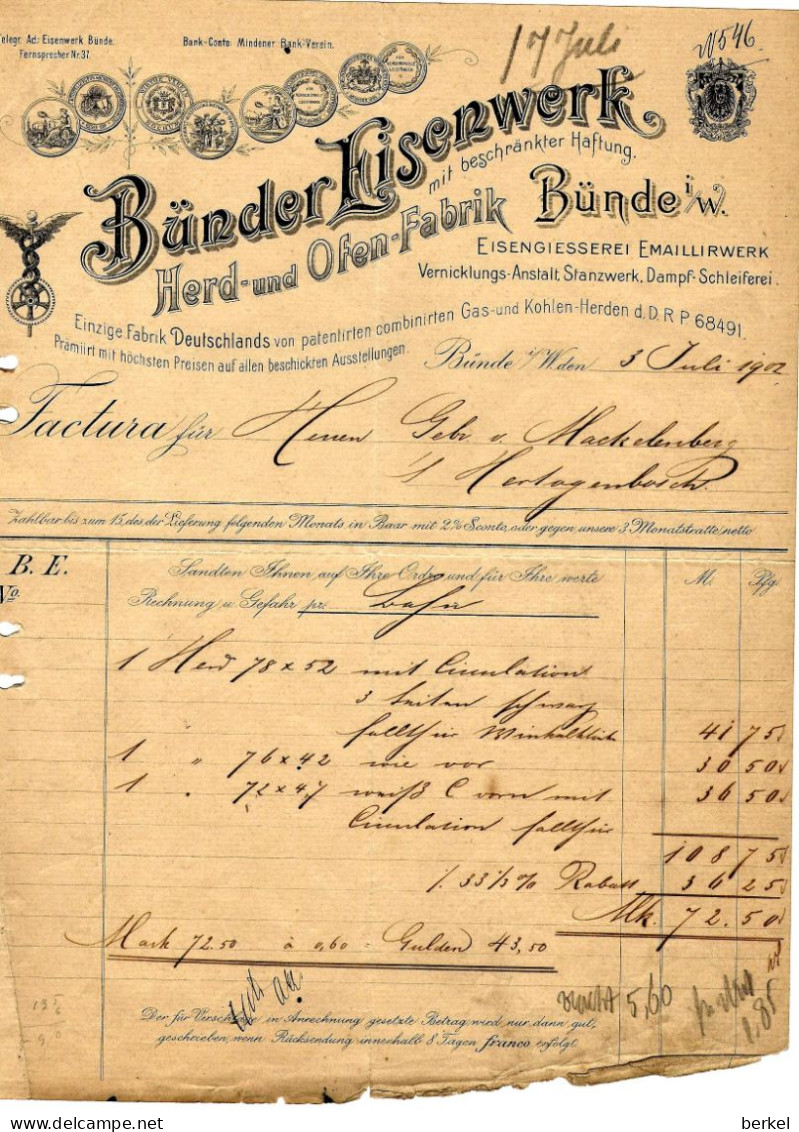 Telegr. Ad.: Eisenwerk Bünde.
Fernsprecher Nr. 37.
Bank-Conto: Mindener Bank-Verein.
17 Juli
N 546
Bünder Eisenwerk
mit beschränkter Haftung.
Herd- und Ofen-Fabrik
Bünde i/W.
EISENGIESSEREI EMAILLIRWERK
Vernicklungs-Anstalt, Stanzwerk, Dampf-Schleiferei.
Einzige Fabrik Deutschlands von patentirten combinirten Gas- und Kohlen-Herden d. D. R P 68491.
Prämiirt mit höchsten Preisen auf allen beschickten Ausstellungen.
Bünde i/W. den 3 Juli 1902
Factura für Herren Gebr. v. Mackelenberg
's Hertogenbosch.
Zahlbar bis zum 15. des der Lieferung folgenden Monats in Baar mit 2% Sconto, oder gegen unsere 3 Monatstratte netto
B. E.
No.
Sandten Ihnen auf Ihre Ordre und für Ihre werte
M. Pfg.
Rechnung u. Gefahr pr. Bahn
1 Herd 78 x 52 mit Circulation
3 Seiten schwarz
41 75
1 " 76 x 42 wie vor 30 50
1 " 72 x 47 weiß C vorn mit 36 50
Circulation
108 75
/. 33 1/3 % Rabatt 36 25
Mk. 72.50
Mark 72.50 à 0,60 = Gulden 43,50
5,60
1,85
Der für Verschläge in Anrechnung gesetzte Betrag wird nur dann gut
geschrieben, wenn Rücksendung innerhalb 8 Tagen franco erfolgt
berkel